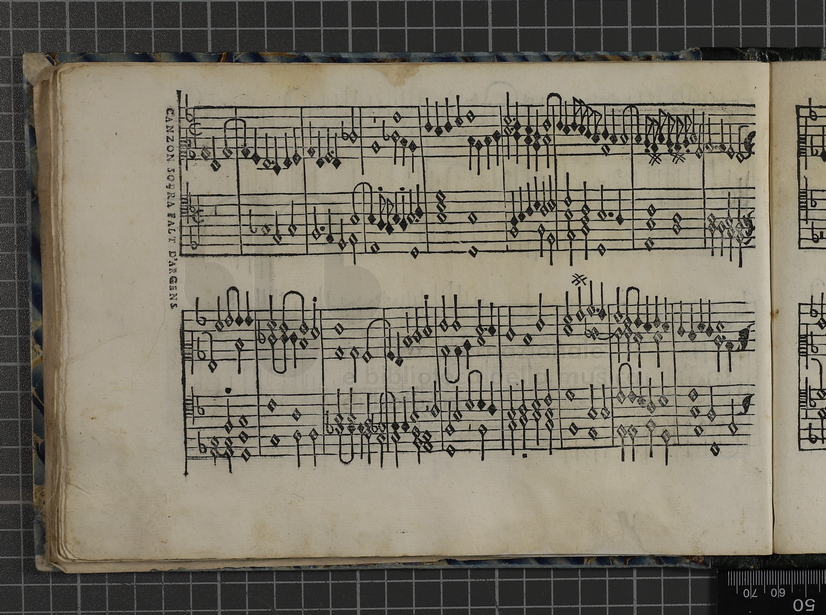 CANZON SOPRA FALT D'ARGENS
70 60
50